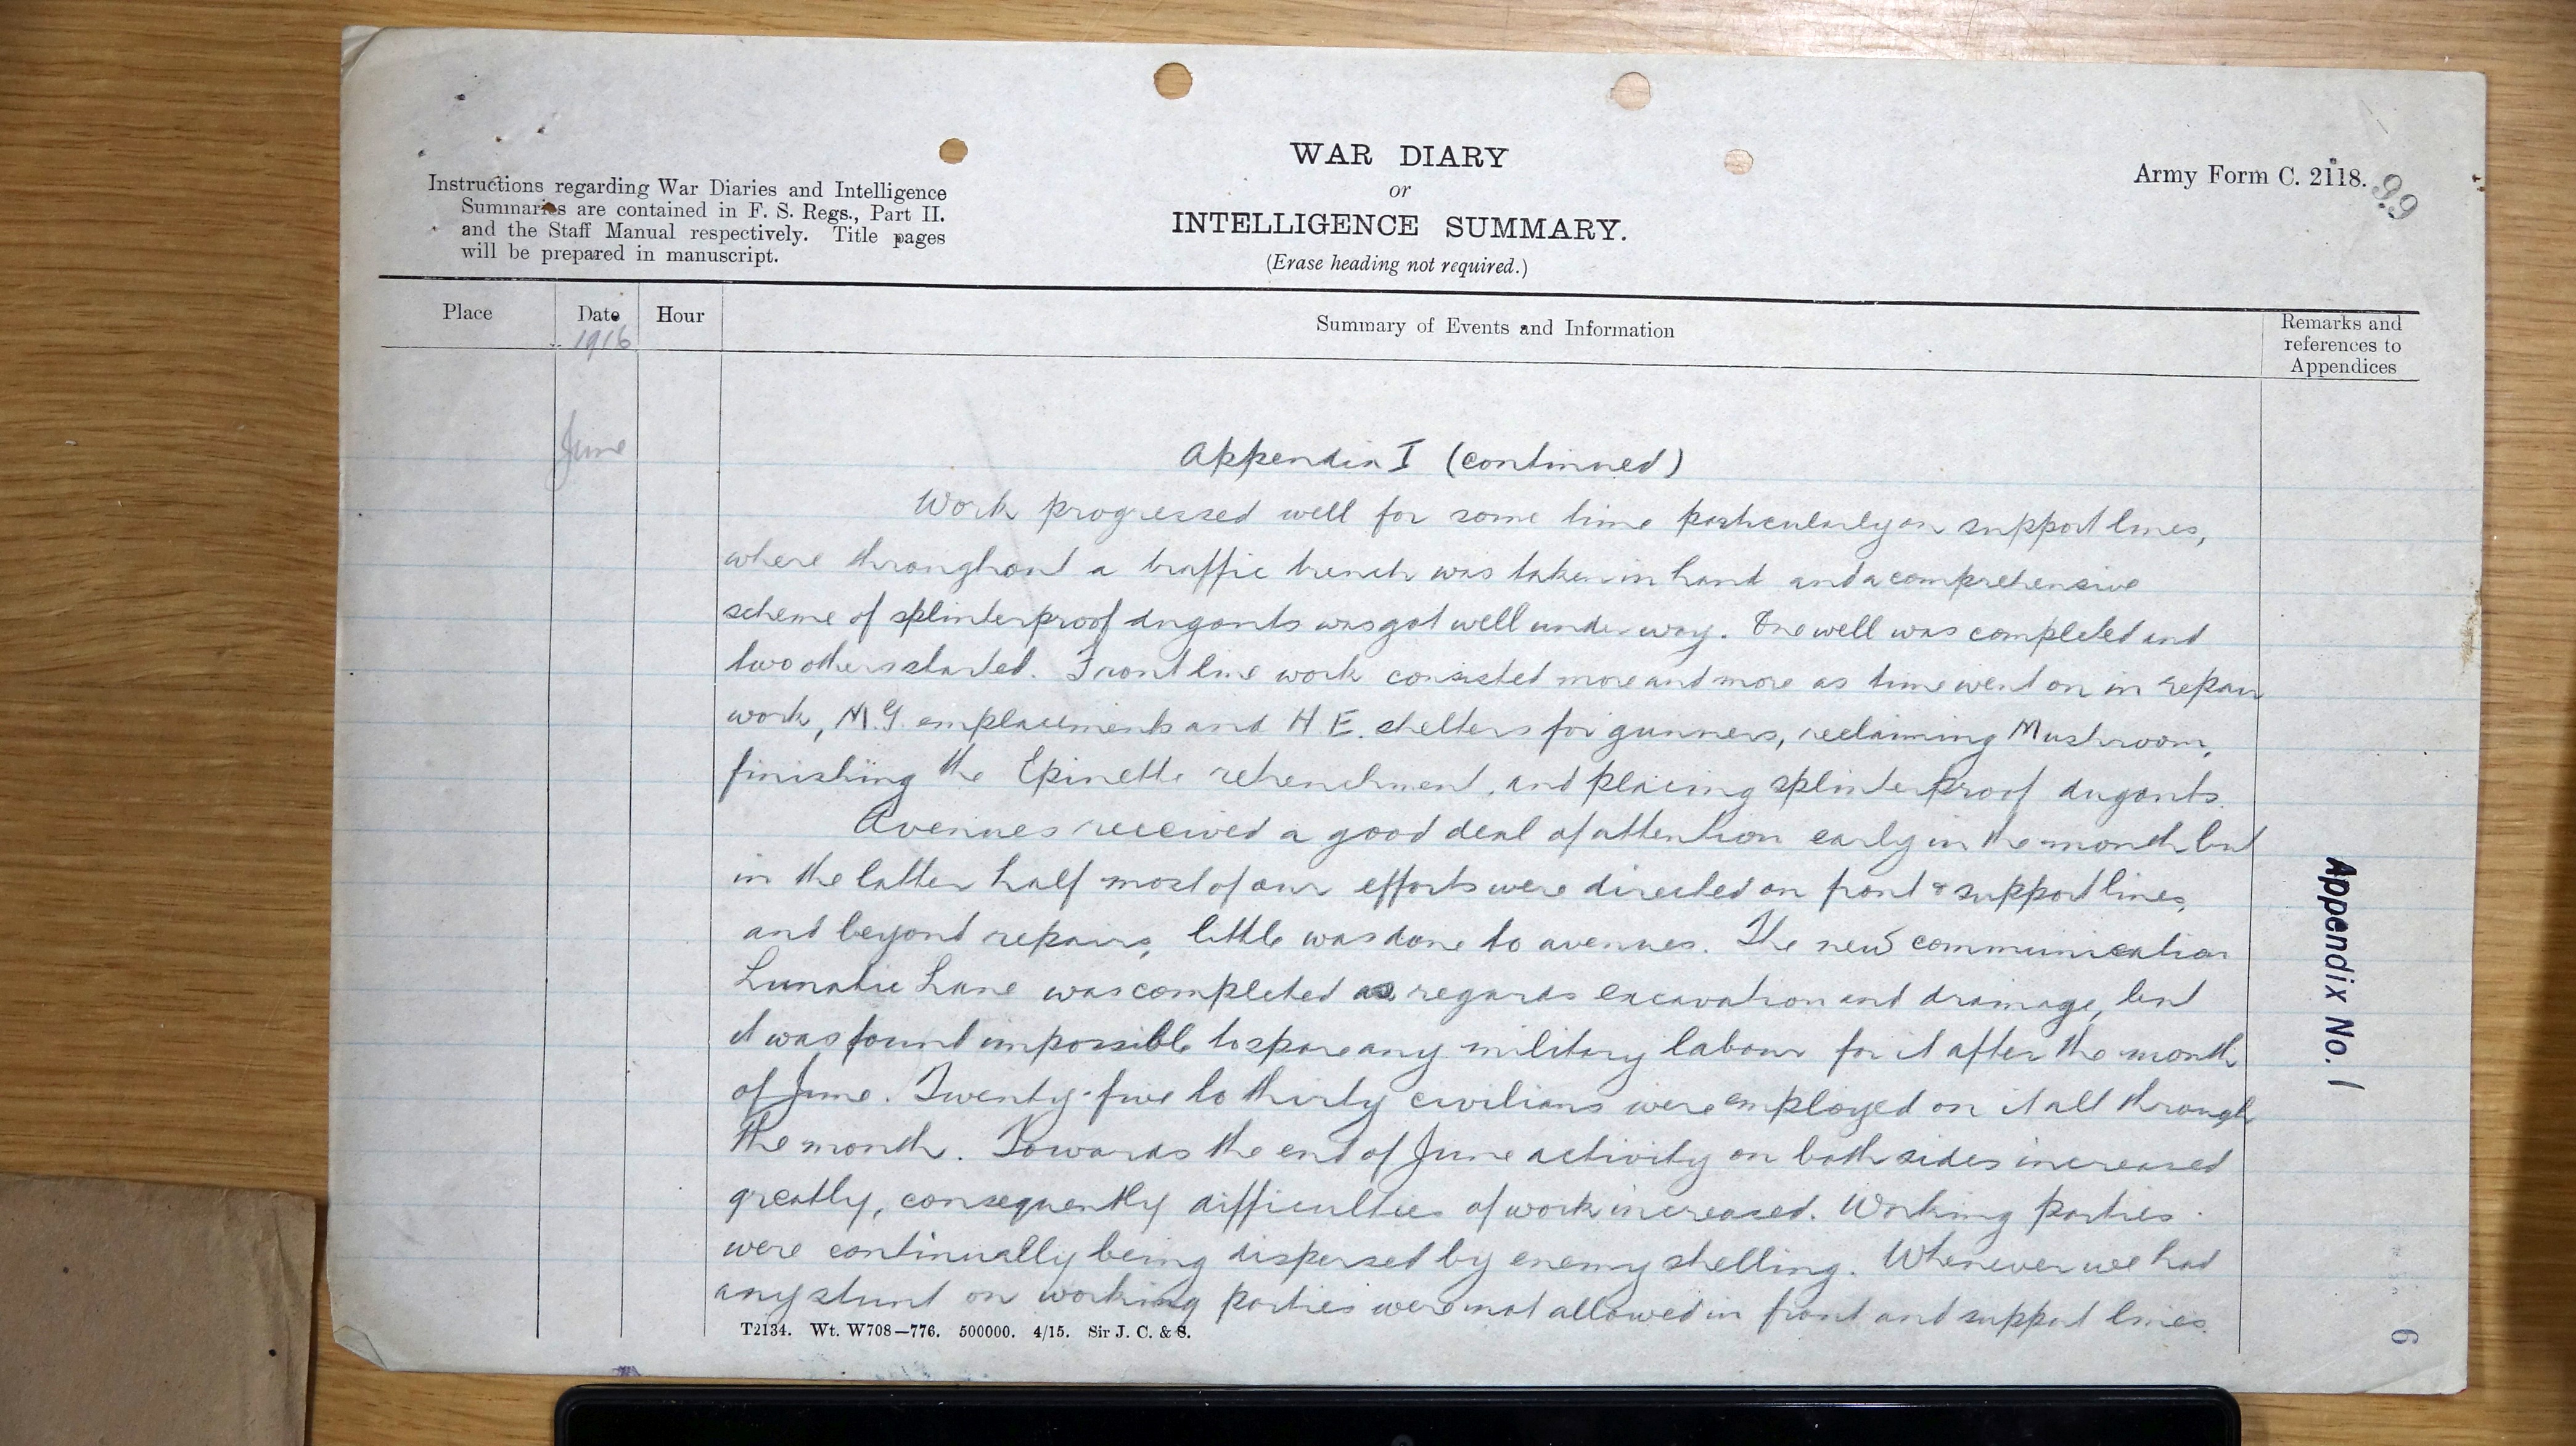 WAR DIARY
or
INTELLIGENCE SUMMARY.
(Erase heading not required.)
Army Form C. 2118.
99
Instructions regarding War Diaries and Intelligence
Summaries are contained in F. S. Regs., Part II.
and the Staff Manual respectively. Title pages
will be prepared in manuscript.
Place
Date
1916
Hour
Summary of Events and Information
Remarks and
references to
Appendices
June
Appendix I (continued)
Work progressed well for some time particularly on support lines,
where throughout a traffic trench was taken in hand and a comprehensive
scheme of splinterproof dugouts was got well under way. One well was completed and
two others started. Front line work consisted more and more as time went on in repair
work, M.G. emplacements and H E. shelters for gunners, reclaiming Mushroom,
finishing the Epinette retrenchment, and placing splinterproof dugouts.
Avenues received a good deal of attention early in the month but
in the latter half most of our efforts were directed on front & support lines,
and beyond repairs, little was done to avenues. The new communication
Lunatic Lane was completed as regards excavation and drainage, but
it was found impossible to spare any military labour for it after the month
of June. Twenty-five to thirty civilians were employed on it all through
the month. Towards the end of June activity on both sides increased
greatly, consequently difficulties of work increased. Working parties
were continually being dispersed by enemy shelling. Whenever we had
any stunt on working parties were not allowed in front and support lines.
Appendix No. 1
T2134. Wt. W708—776. 500000. 4/15. Sir J. C. & S.
6